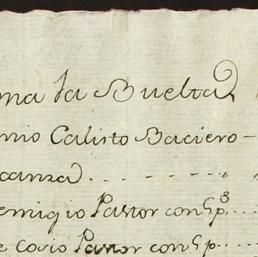 ma la Buelta
nio Calisto Baciero -
canza . . . - - - . "
emigio Pastor con Sp.s . . .
e Cosio Pastor con Sp. . . .